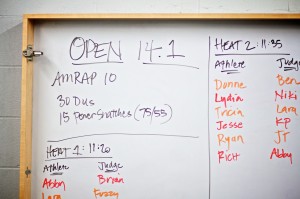 OPEN 14.1
AMRAP 10
30 DUs
15 Power Snatches (75/55)
HEAT 1: 11:20
Athlete Judge
Abby Brian
Lara Fuzzy
HEAT 2 11:35
Athlete Judge
Donne Ben
Lydia Niki
Tricia Lara
Jesse KP
Ryan JT
Rich Abby